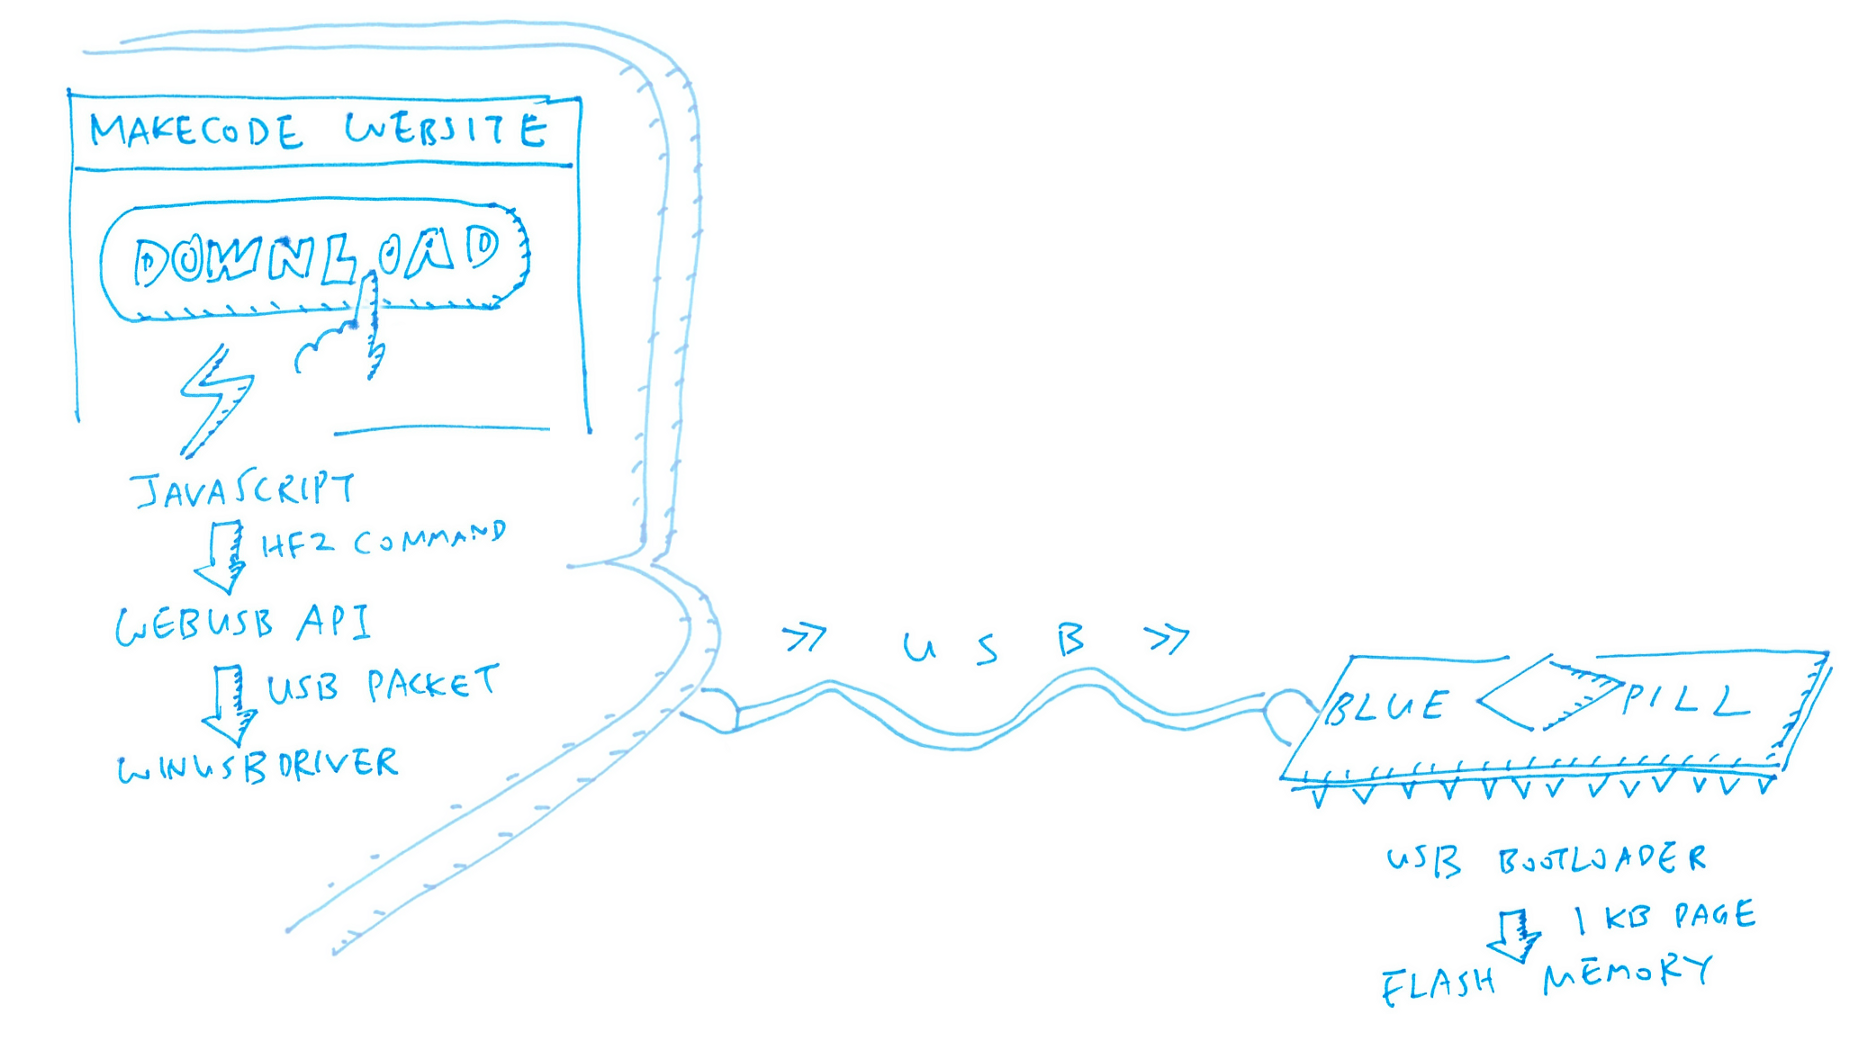 MAKECODE WEBSITE
DOWNLOAD
JAVASCRIPT
HF2 COMMAND
WEBUSB API
USB PACKET
WINUSB DRIVER
>> USB >>
BLUE PILL
USB BOOTLOADER
1 KB PAGE
FLASH MEMORY